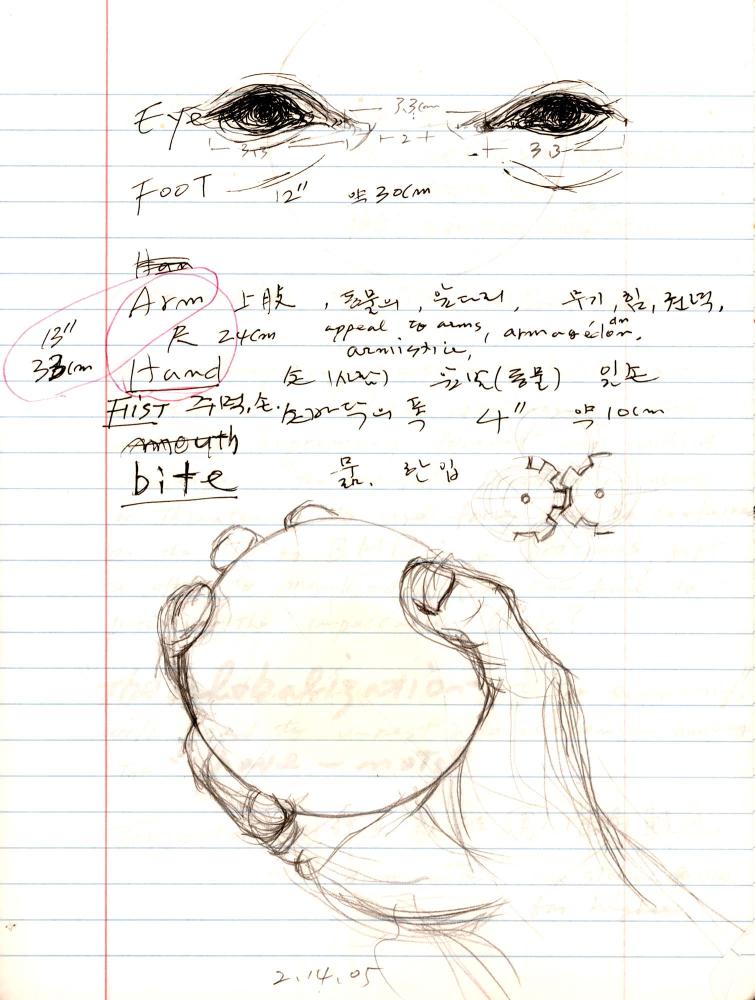 Eye 3.3cm
3.3 2 3.3
FOOT 12" 약 30cm
Arm 上肢, 동물의, 앞다리, 무기, 힘, 권력,
13" 尺 24cm appeal to arms,
33cm armistice,
Hand 손 (사람) 앞발(동물) 일손
FIST 주먹, 손. 손바닥의 폭 4" 약 10cm
mouth
bite 묾.
2.14.05